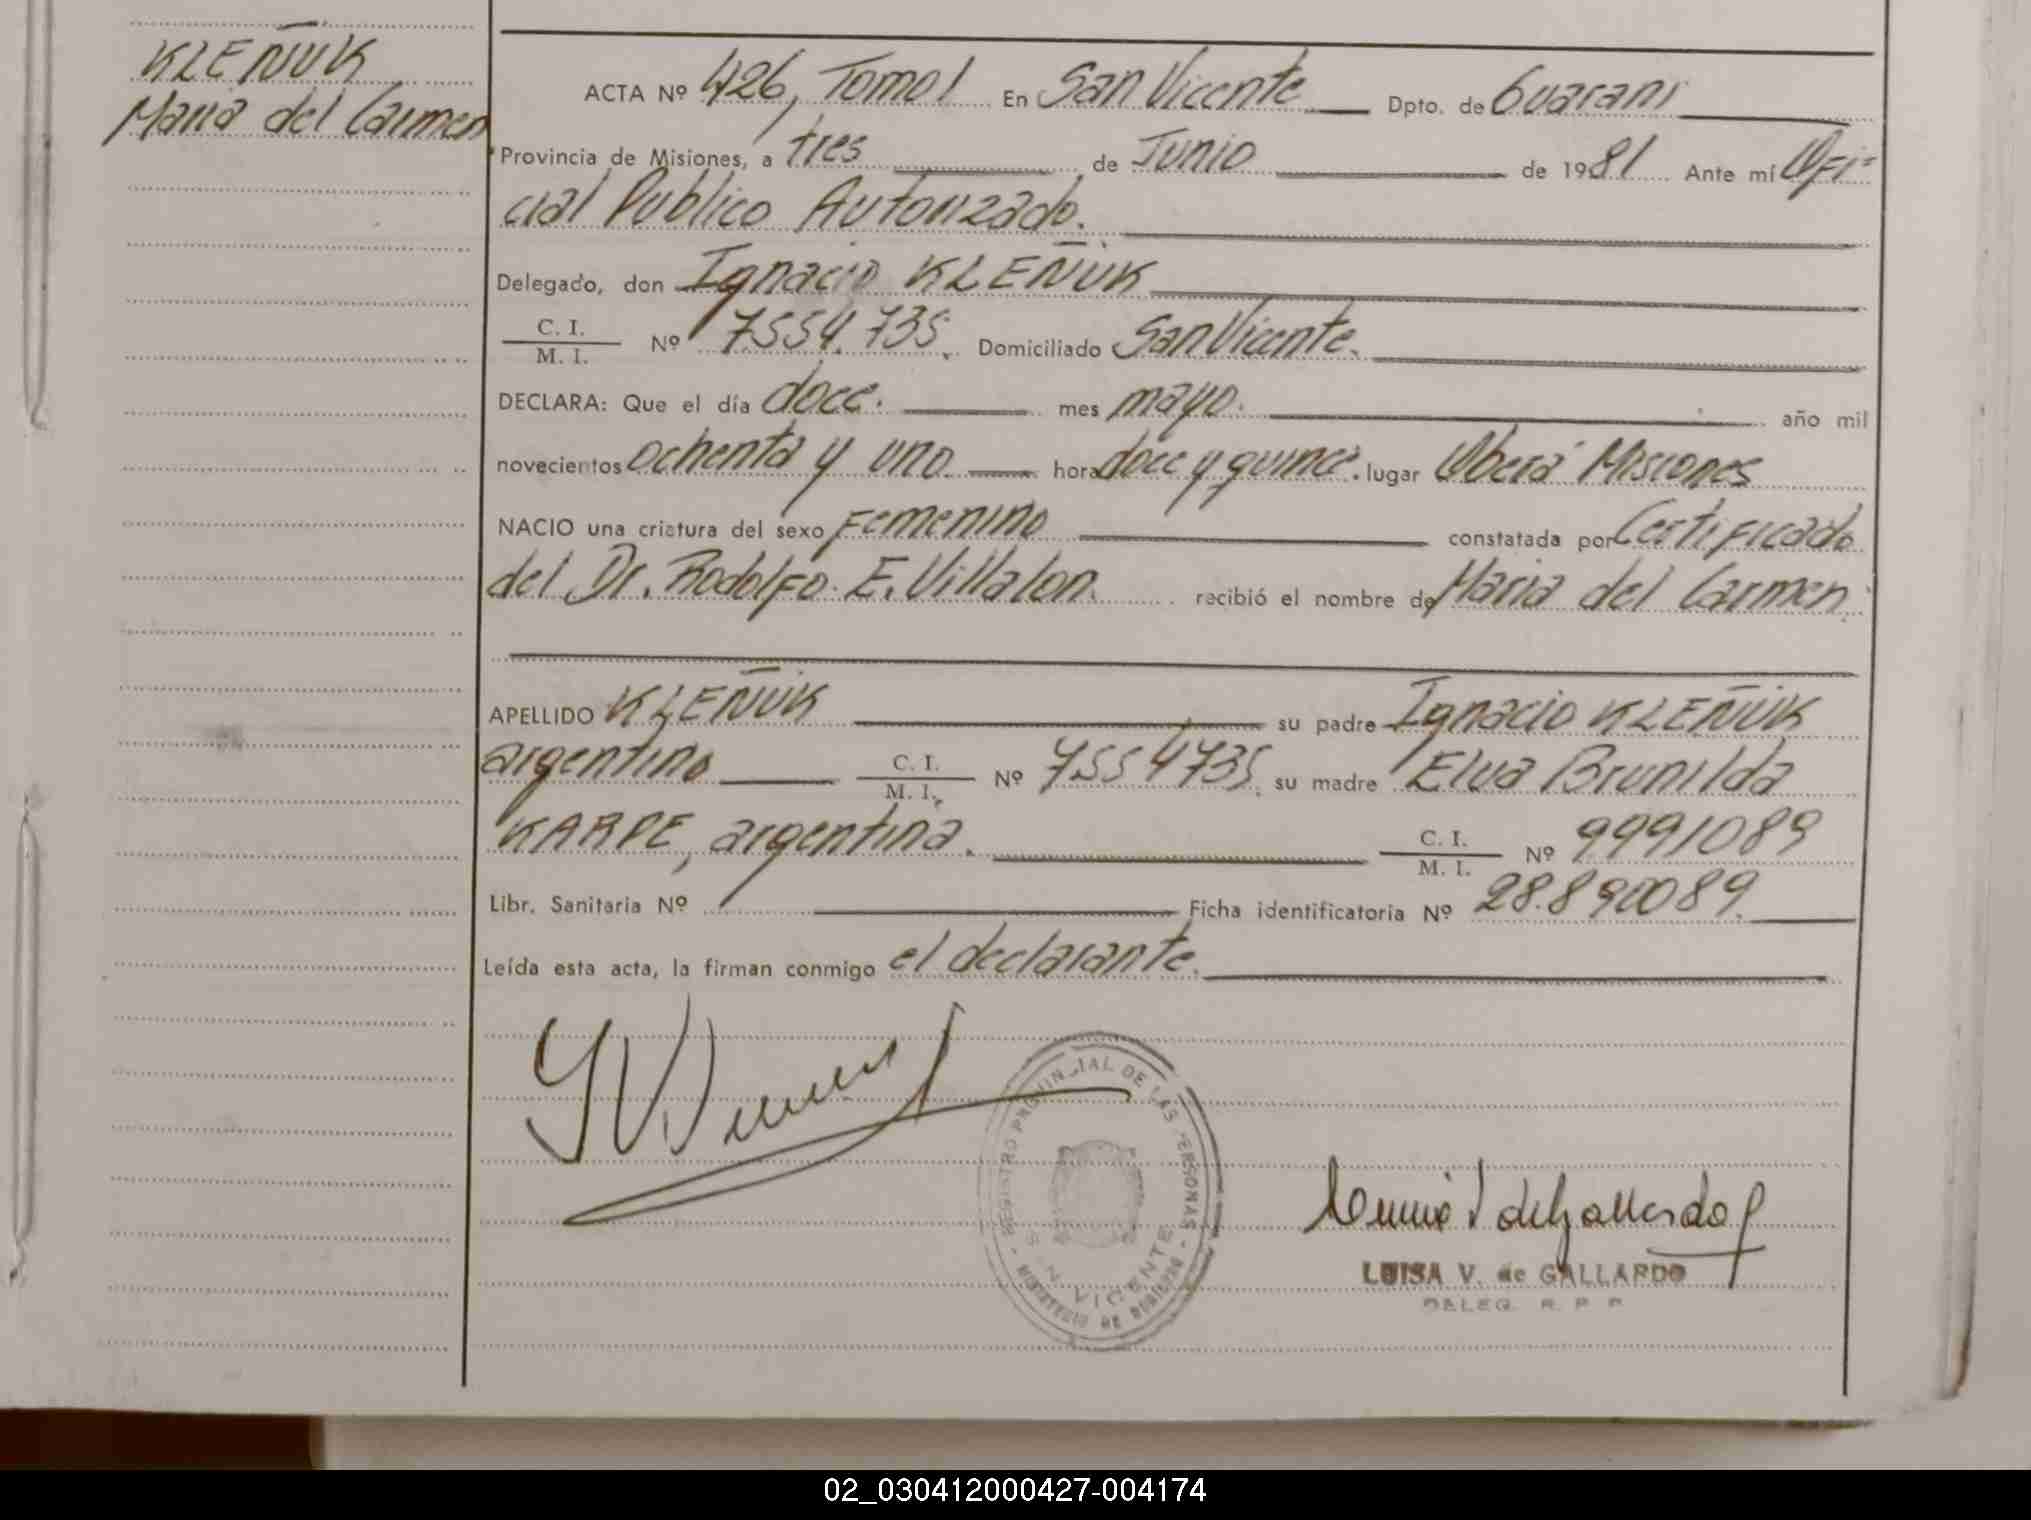 KLEÑUK
Maria del Carmen
ACTA Nº 426, Tomo I En San Vicente Dpto. de Guarani
Provincia de Misiones, a tres de Junio de 1981 Ante mí Ofi-
cial Publico Autorizado.
Delegado, don Ignacio KLEÑUK
C. I.
M. I. Nº 7554.735. Domiciliado San Vicente.
DECLARA: Que el día doce. mes mayo. año mil
novecientos ochenta y uno hora doce y quince. lugar Oberá Misiones
NACIO una criatura del sexo Femenino constatada por Certificado
del Dr. Rodolfo E. Villalon. recibió el nombre de Maria del Carmen.
APELLIDO KLEÑUK su padre Ignacio KLEÑUK
argentino C. I.
M. I. Nº 7554735, su madre Elva Brunilda
KARPE, argentina. C. I.
M. I. Nº 9991089
Libr. Sanitaria Nº Ficha identificatoria Nº 28.890089.
Leída esta acta, la firman conmigo el declarante.
REGISTRO PROVINCIAL DE LAS PERSONAS
SAN VICENTE
MINISTERIO DE GOBIERNO
de Gallardo
LUISA V. de GALLARDO
DELEG. R. P. P.
02_030412000427-004174